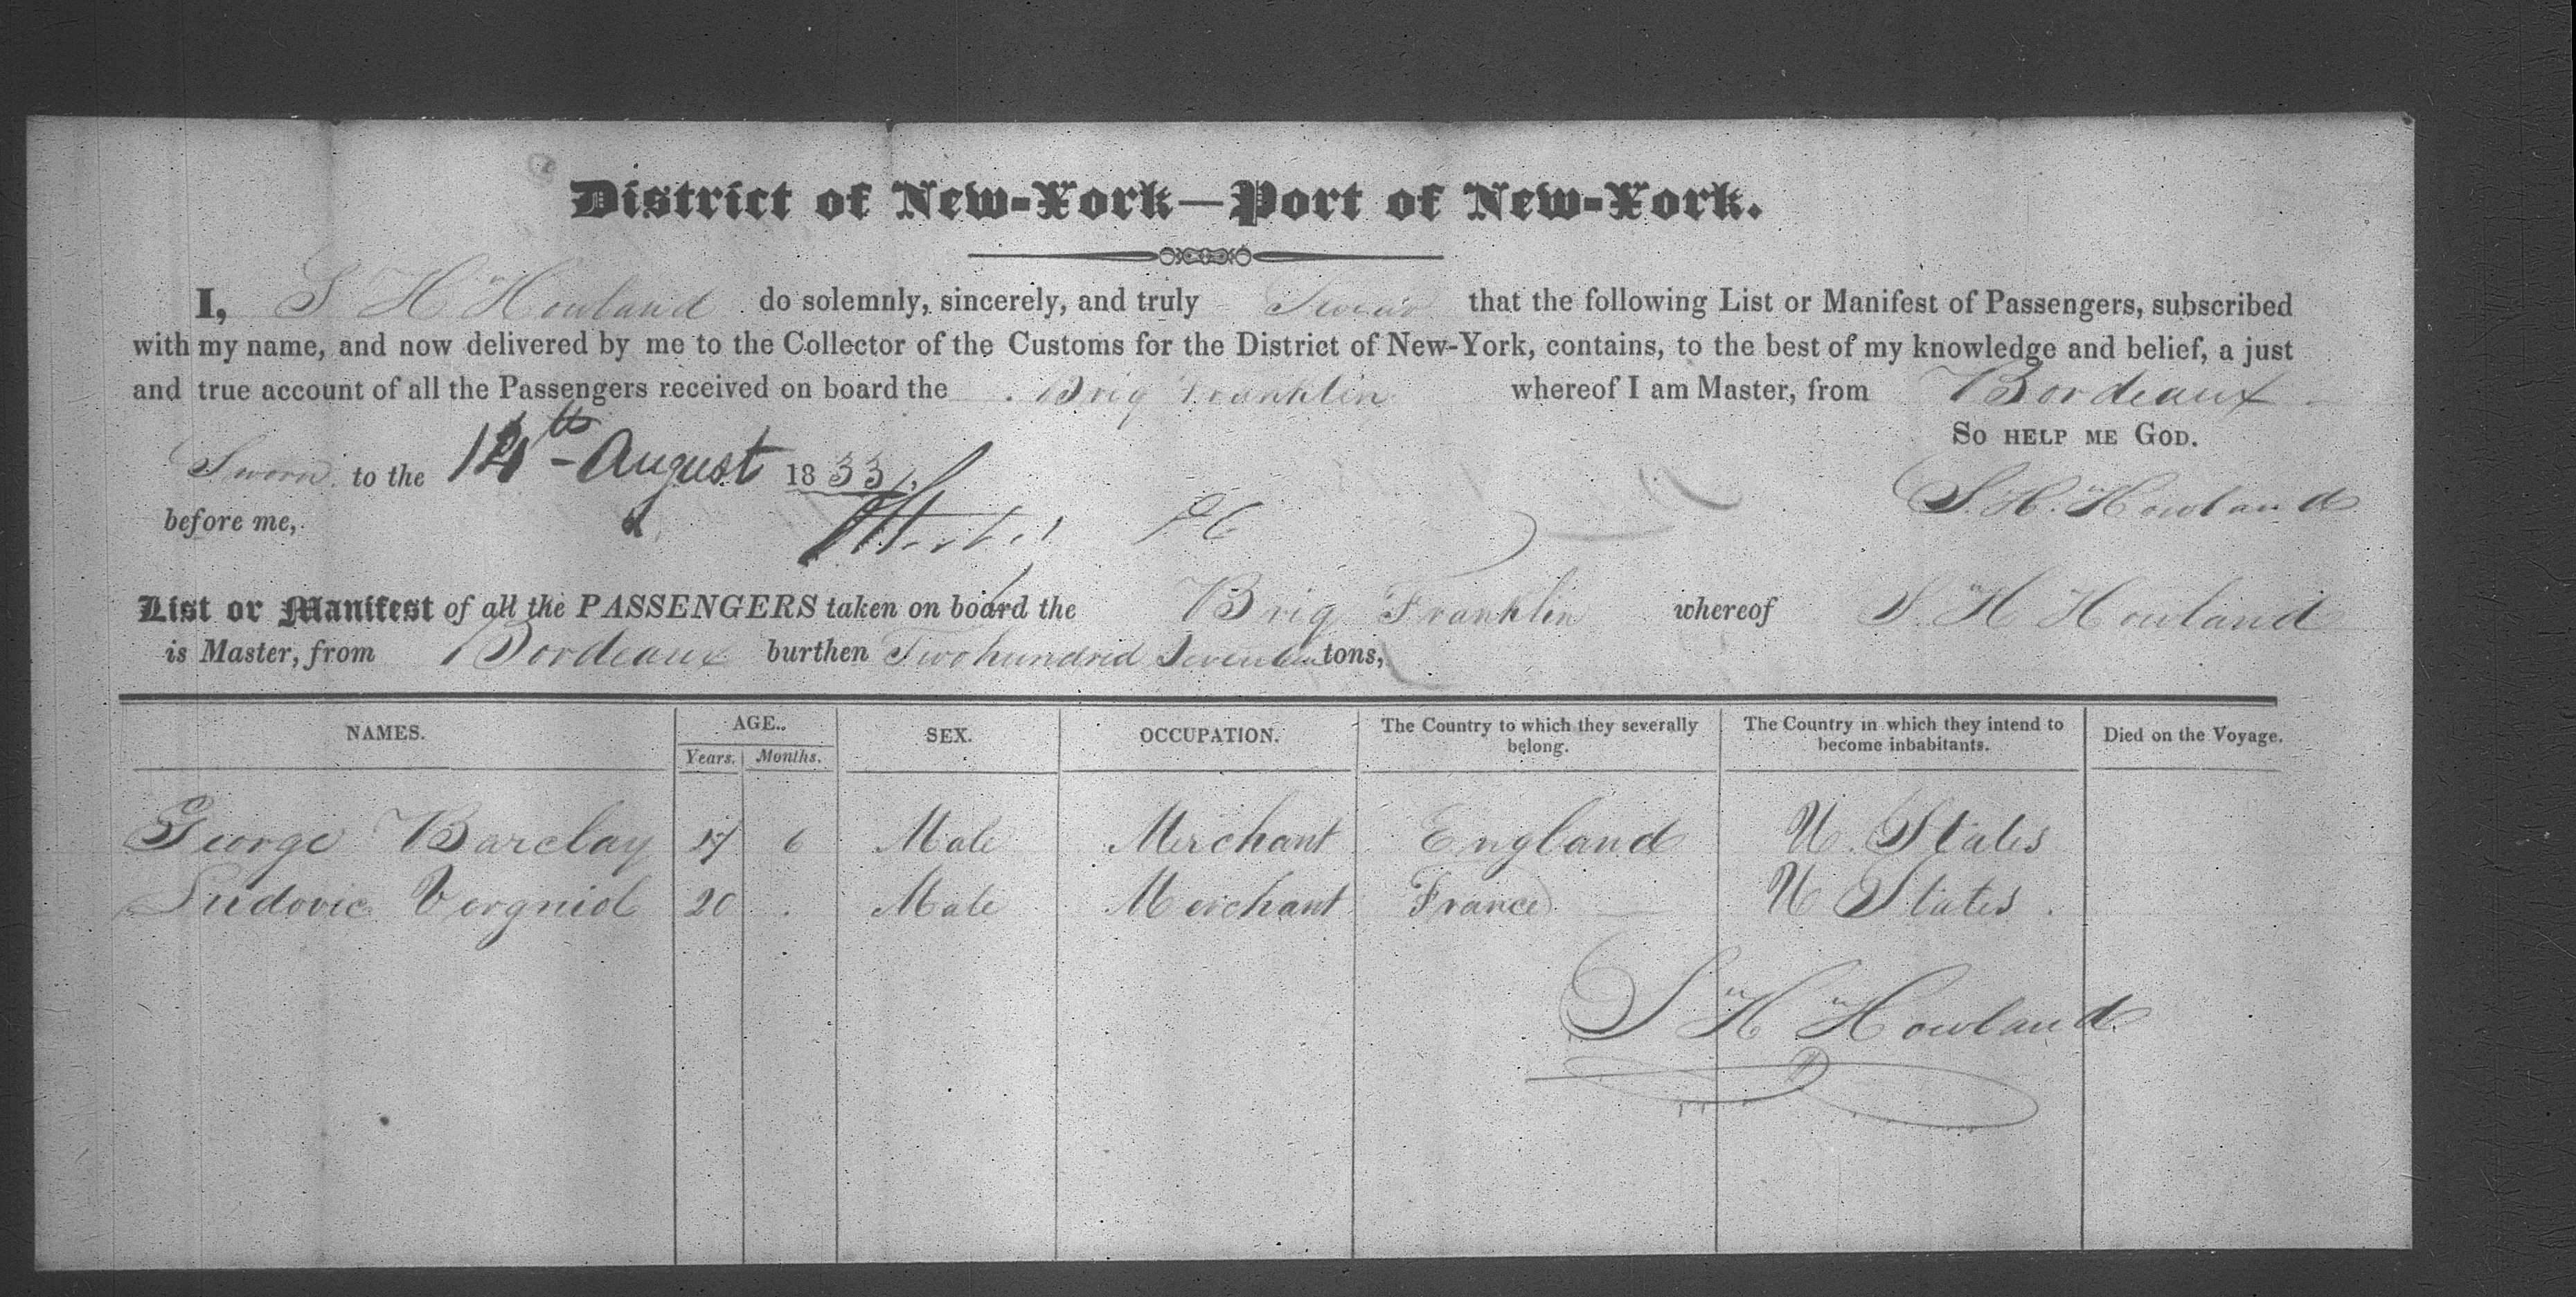 District of New-York—Port of New-York.
I, S H Howland do solemnly, sincerely, and truly Swear that the following List or Manifest of Passengers, subscribed
with my name, and now delivered by me to the Collector of the Customs for the District of New-York, contains, to the best of my knowledge and belief, a just
and true account of all the Passengers received on board the Brig Franklin whereof I am Master, from Bordeaux
So help me God.
Sworn to the 14th August 1833
before me,
S. H. Howland
List or Manifest of all the PASSENGERS taken on board the Brig Franklin whereof S. H Howland
is Master, from Bordeaux burthen Two hundred Seventeen tons,
NAMES. AGE. SEX. OCCUPATION. The Country to which they severally belong. The Country in which they intend to become inhabitants. Died on the Voyage.
Years. Months.
George Barclay 17 6 Male Merchant England U. States
Ludovic Vergniol 20 Male Merchant France U States.
S H Howland